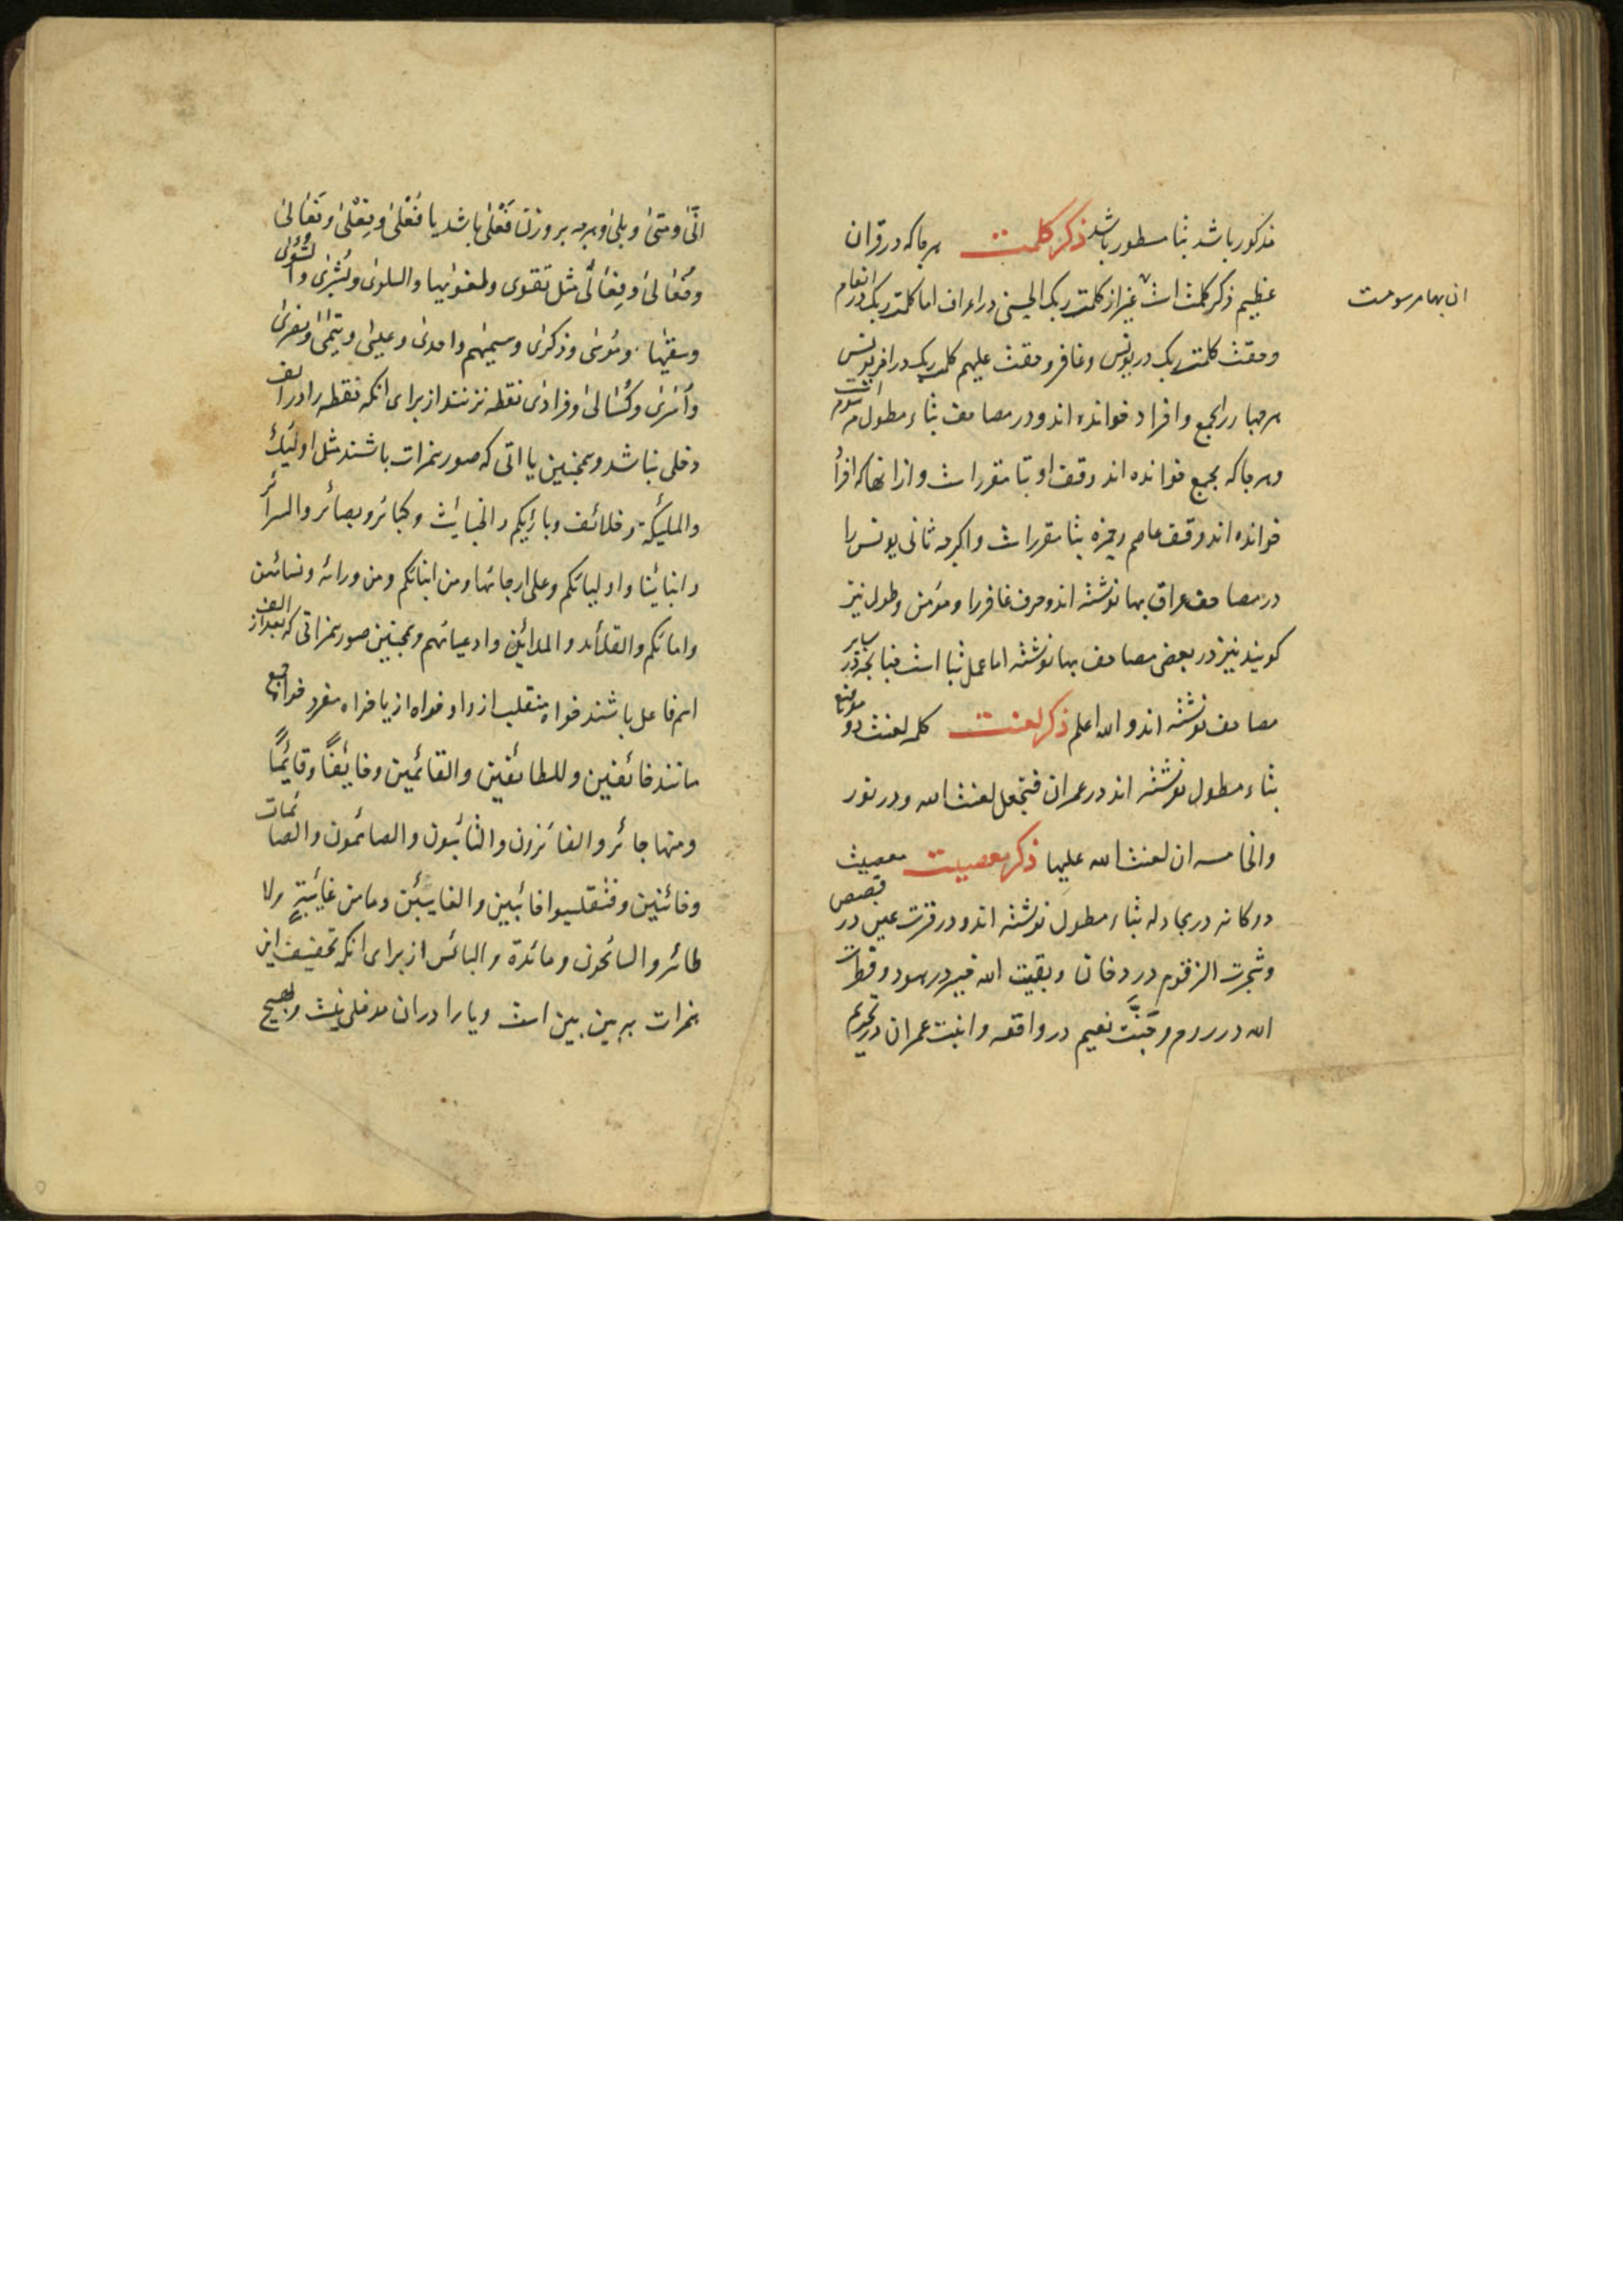 مذکور باشد بتا مسطور باشد ذکر کلمت هر جا که در قران
عظیم ذکر کلمت است غیر از کلمت ربک الحسنی در اعراف اما کلمت ربک در انعام
ان بها مرسومست
وحقت کلمت ربک در یونس و غافر و حقت علیهم کلمت ربک در اخر یونس
هر چهار را بجمع وافراد خوانده اند و در مصاحف بتاء مطول مرسوم است
و هر جا که بجمع خوانده اند وقف او بتا مقرر است و از انها که افراد
خوانده اند وقف عاصم و حمزه بتا مقرر است و اکرچه ثانی یونس را
در مصاحف عراق بها نوشته اند و حرف غافر را و مؤمن و طول نیز
کویند نیز در بعضی مصاحف بها نوشته اما عمل بتا است در سایر
مصاحف نوشته اند و الله اعلم ذکر لعنت کلمه لعنت دو موضع
بتاء مطول نوشته اند در عمران فنجعل لعنت الله و در نور
والخامسه ان لعنت الله علیها ذکر معصیت معصیت
دوکانه در مجادله بتاء مطول نوشته اند و در قرت عین در قصص
و شجرت الزقوم در دخان و بقیت الله خیر در هود و فطرت
الله در روم و جَنَّت نعیم در واقعه و ابنت عمران در تحریم
انّی و متی و بلی و هرچه بر وزن فَعْلی باشد یا فُعْلی و فِعْلی و فَعَالی
وفُعَالی و فِعَالی مثل تقوی و طغویها والسلوی و بُشْرٰی و
وسقیها و مُوسی و ذکری و سیمیهم و احدی و عیسی و یتمی و نصری
و اُسری و کُسَالی و فرادی نقطه نزنند از برای انکه نقطه را در الف
دخلی نباشد و همچنین یااتی که صور همزات باشند مثل اولئک
والملئکة و خلائف و بارئکم و الخبائث و کبائر و بصائر و السرائر
و ابنائنا و اولیائکم و علی ارجائها و من ابنائکم و من ورائه و نسائهن
و امائکم و القلائد و المدائن و ادعیائهم و همچنین صور همزاتی که بعد از الف
اسم فاعل باشند خواه منقلب از واو خواه از یا خواه مفرد خواه جمع
مانند خائفین و للطائفین و القائمین و خائفًا و قائمًا
و منها جائر و الفائزون و التائبون و الصائمون و الصائمات
و خائنین و فینقلبوا خائبین و الغائبین و ما من غائبةٍ و لا
طائر و السائحون و مائدة و البائس از برای انکه تخفیف این
همزات به بین بین است و یا را دران مدخلی نیست و هیچ